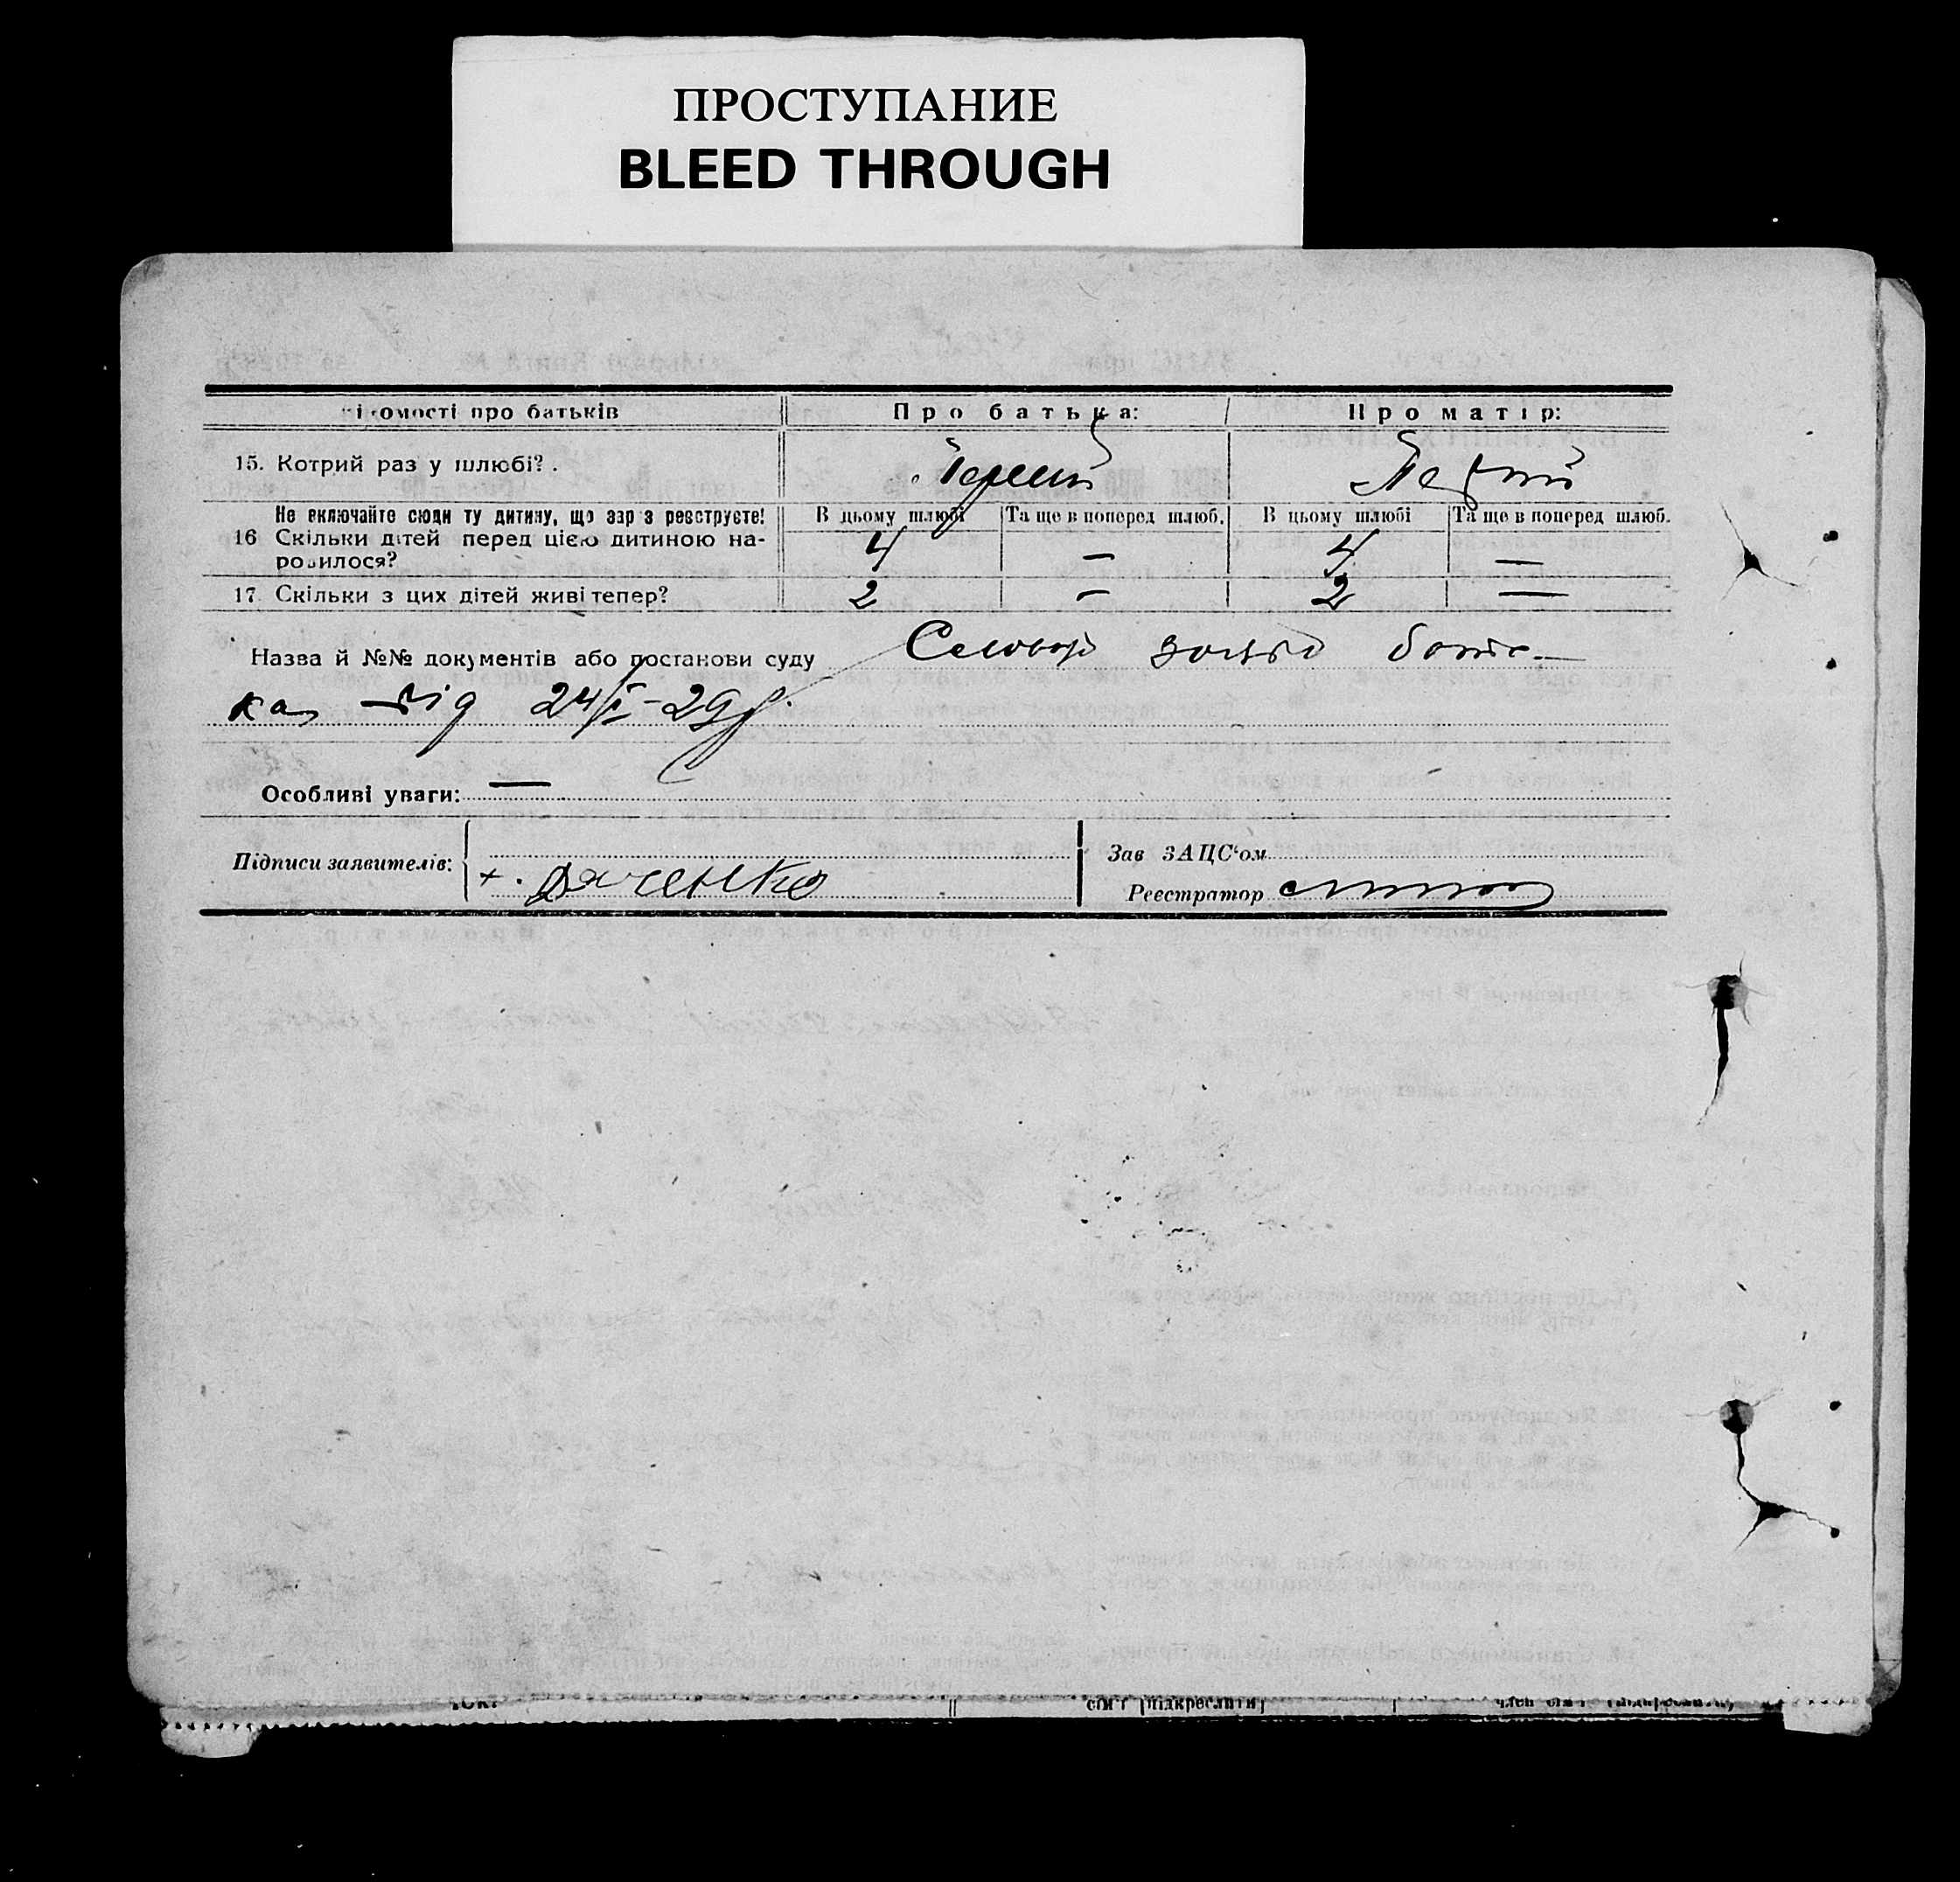 ПРОСТУПАНИЕ
BLEED THROUGH
ідомості про батьків Про батька: Про матір:
15. Котрий раз у шлюбі? Перший Перший
Не включайте сюди ту дитину, що зараз реєструєте! В цьому шлюбі Та ще в поперед шлюб. В цьому шлюбі Та ще в поперед шлюб.
16 Скільки дітей перед цією дитиною на-
родилося? 4 — 4 —
17 Скільки з цих дітей живі тепер? 2 — 2 —
Назва й №№ документів або постанови суду Словою батьк-
ка від 24/I-29р.
Особливі уваги: —
Підписи заявителів: + Дяченко
Зав ЗАЦС'ом
Реєстратор
сім'ї (підкреслити) член сім'ї (підкреслити)